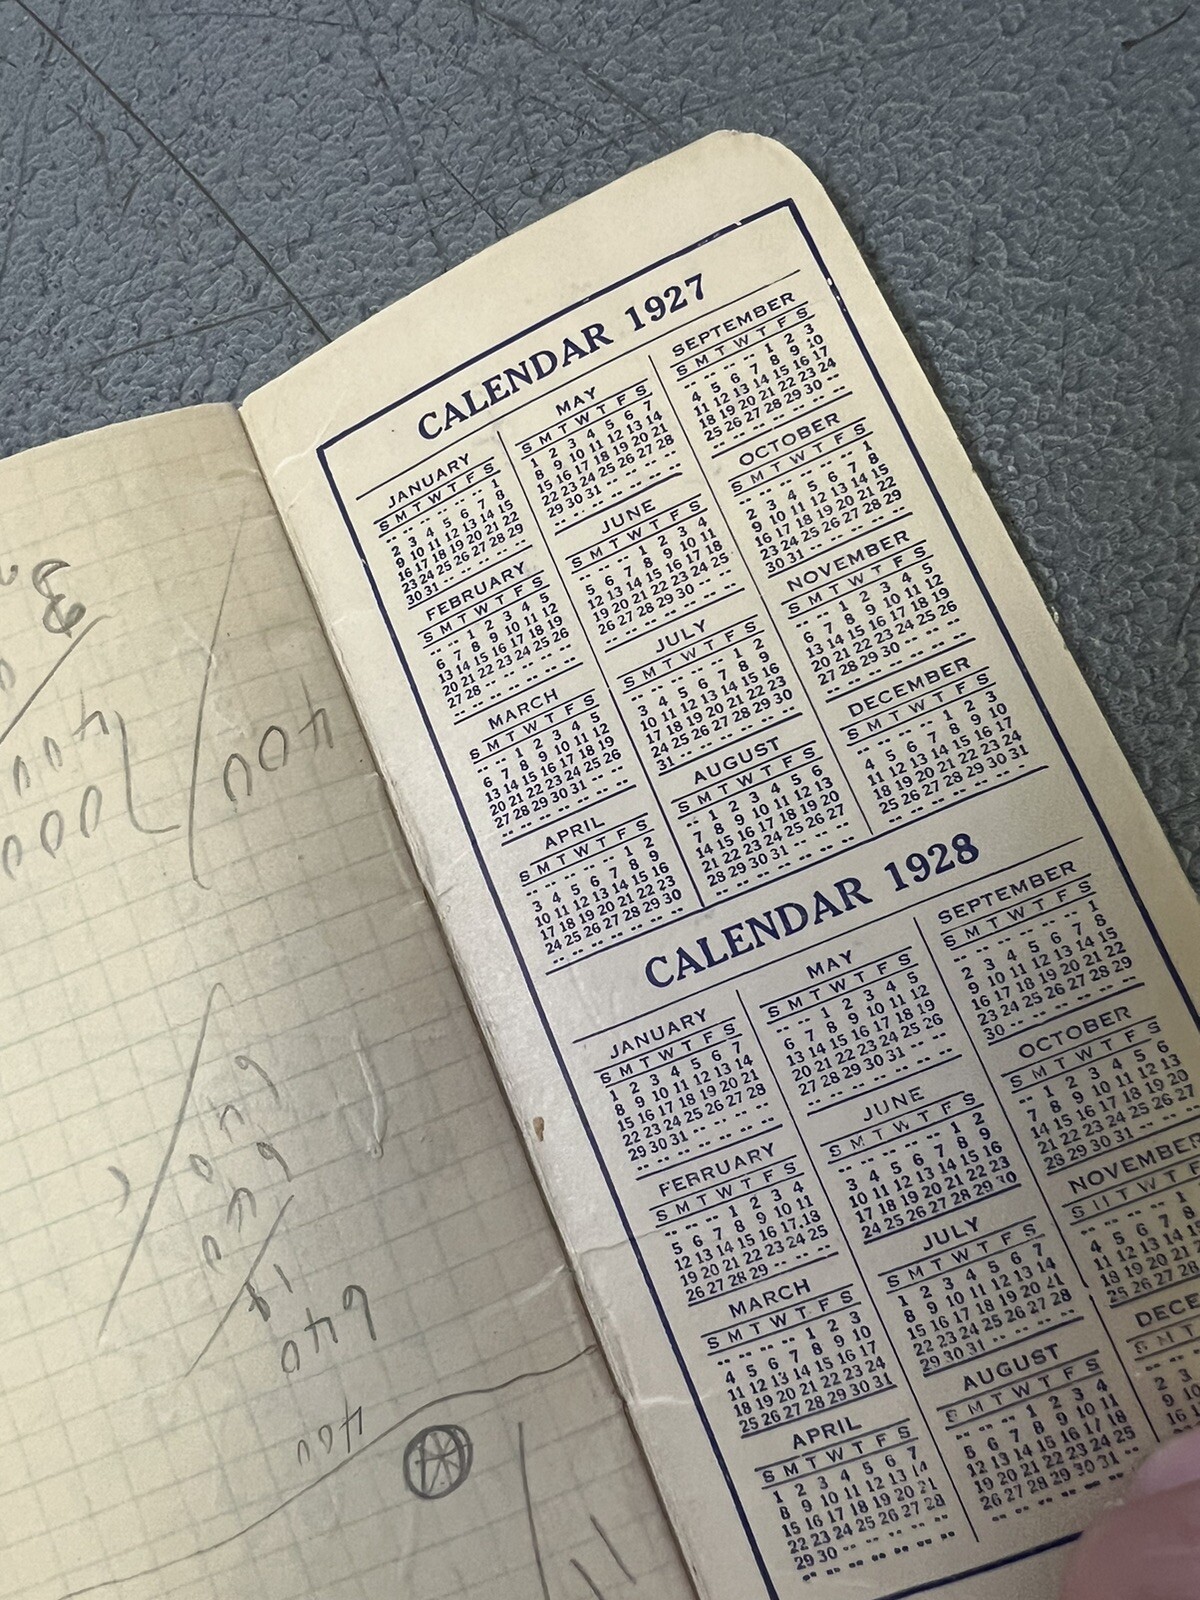 400
7000
640
400
CALENDAR 1927
JANUARY
S M T W T F S
-- -- -- -- -- -- 1
2 3 4 5 6 7 8
9 10 11 12 13 14 15
16 17 18 19 20 21 22
23 24 25 26 27 28 29
30 31 -- -- -- -- --
FEBRUARY
S M T W T F S
-- -- 1 2 3 4 5
6 7 8 9 10 11 12
13 14 15 16 17 18 19
20 21 22 23 24 25 26
27 28 -- -- -- -- --
-- -- -- -- -- -- --
MARCH
S M T W T F S
-- -- 1 2 3 4 5
6 7 8 9 10 11 12
13 14 15 16 17 18 19
20 21 22 23 24 25 26
27 28 29 30 31 -- --
-- -- -- -- -- -- --
APRIL
S M T W T F S
-- -- -- -- -- 1 2
3 4 5 6 7 8 9
10 11 12 13 14 15 16
17 18 19 20 21 22 23
24 25 26 27 28 29 30
-- -- -- -- -- -- --
MAY
S M T W T F S
1 2 3 4 5 6 7
8 9 10 11 12 13 14
15 16 17 18 19 20 21
22 23 24 25 26 27 28
29 30 31 -- -- -- --
-- -- -- -- -- -- --
JUNE
S M T W T F S
-- -- -- 1 2 3 4
5 6 7 8 9 10 11
12 13 14 15 16 17 18
19 20 21 22 23 24 25
26 27 28 29 30 -- --
-- -- -- -- -- -- --
JULY
S M T W T F S
-- -- -- -- -- 1 2
3 4 5 6 7 8 9
10 11 12 13 14 15 16
17 18 19 20 21 22 23
24 25 26 27 28 29 30
31 -- -- -- -- -- --
AUGUST
S M T W T F S
-- 1 2 3 4 5 6
7 8 9 10 11 12 13
14 15 16 17 18 19 20
21 22 23 24 25 26 27
28 29 30 31 -- -- --
-- -- -- -- -- -- --
SEPTEMBER
S M T W T F S
-- -- -- -- 1 2 3
4 5 6 7 8 9 10
11 12 13 14 15 16 17
18 19 20 21 22 23 24
25 26 27 28 29 30 --
-- -- -- -- -- -- --
OCTOBER
S M T W T F S
-- -- -- -- -- -- 1
2 3 4 5 6 7 8
9 10 11 12 13 14 15
16 17 18 19 20 21 22
23 24 25 26 27 28 29
30 31 -- -- -- -- --
NOVEMBER
S M T W T F S
-- -- 1 2 3 4 5
6 7 8 9 10 11 12
13 14 15 16 17 18 19
20 21 22 23 24 25 26
27 28 29 30 -- -- --
-- -- -- -- -- -- --
DECEMBER
S M T W T F S
-- -- -- -- 1 2 3
4 5 6 7 8 9 10
11 12 13 14 15 16 17
18 19 20 21 22 23 24
25 26 27 28 29 30 31
-- -- -- -- -- -- --
CALENDAR 1928
JANUARY
S M T W T F S
1 2 3 4 5 6 7
8 9 10 11 12 13 14
15 16 17 18 19 20 21
22 23 24 25 26 27 28
29 30 31 -- -- -- --
-- -- -- -- -- -- --
FEBRUARY
S M T W T F S
-- -- -- 1 2 3 4
5 6 7 8 9 10 11
12 13 14 15 16 17 18
19 20 21 22 23 24 25
26 27 28 29 -- -- --
MARCH
S M T W T F S
-- -- -- -- 1 2 3
4 5 6 7 8 9 10
11 12 13 14 15 16 17
18 19 20 21 22 23 24
25 26 27 28 29 30 31
APRIL
S M T W T F S
1 2 3 4 5 6 7
8 9 10 11 12 13 14
15 16 17 18 19 20 21
22 23 24 25 26 27 28
29 30 -- -- -- -- --
-- -- -- -- -- -- --
MAY
S M T W T F S
-- -- 1 2 3 4 5
6 7 8 9 10 11 12
13 14 15 16 17 18 19
20 21 22 23 24 25 26
27 28 29 30 31 -- --
-- -- -- -- -- -- --
JUNE
S M T W T F S
-- -- -- -- -- 1 2
3 4 5 6 7 8 9
10 11 12 13 14 15 16
17 18 19 20 21 22 23
24 25 26 27 28 29 30
JULY
S M T W T F S
1 2 3 4 5 6 7
8 9 10 11 12 13 14
15 16 17 18 19 20 21
22 23 24 25 26 27 28
29 30 31 -- -- -- --
AUGUST
S M T W T F S
-- -- -- 1 2 3 4
5 6 7 8 9 10 11
12 13 14 15 16 17 18
19 20 21 22 23 24 25
26 27 28 29 30 31 --
-- -- -- -- -- -- --
SEPTEMBER
S M T W T F S
-- -- -- -- -- -- 1
2 3 4 5 6 7 8
9 10 11 12 13 14 15
16 17 18 19 20 21 22
23 24 25 26 27 28 29
30 -- -- -- -- -- --
OCTOBER
S M T W T F S
-- 1 2 3 4 5 6
7 8 9 10 11 12 13
14 15 16 17 18 19 20
21 22 23 24 25 26 27
28 29 30 31 -- -- --
NOVEMBER
S M T W T F S
-- -- -- -- 1
4 5 6 7 8
11 12 13 14 15
18 19 20 21 22
25 26 27 28
DECE
S M T
2 3
9 10
16 17